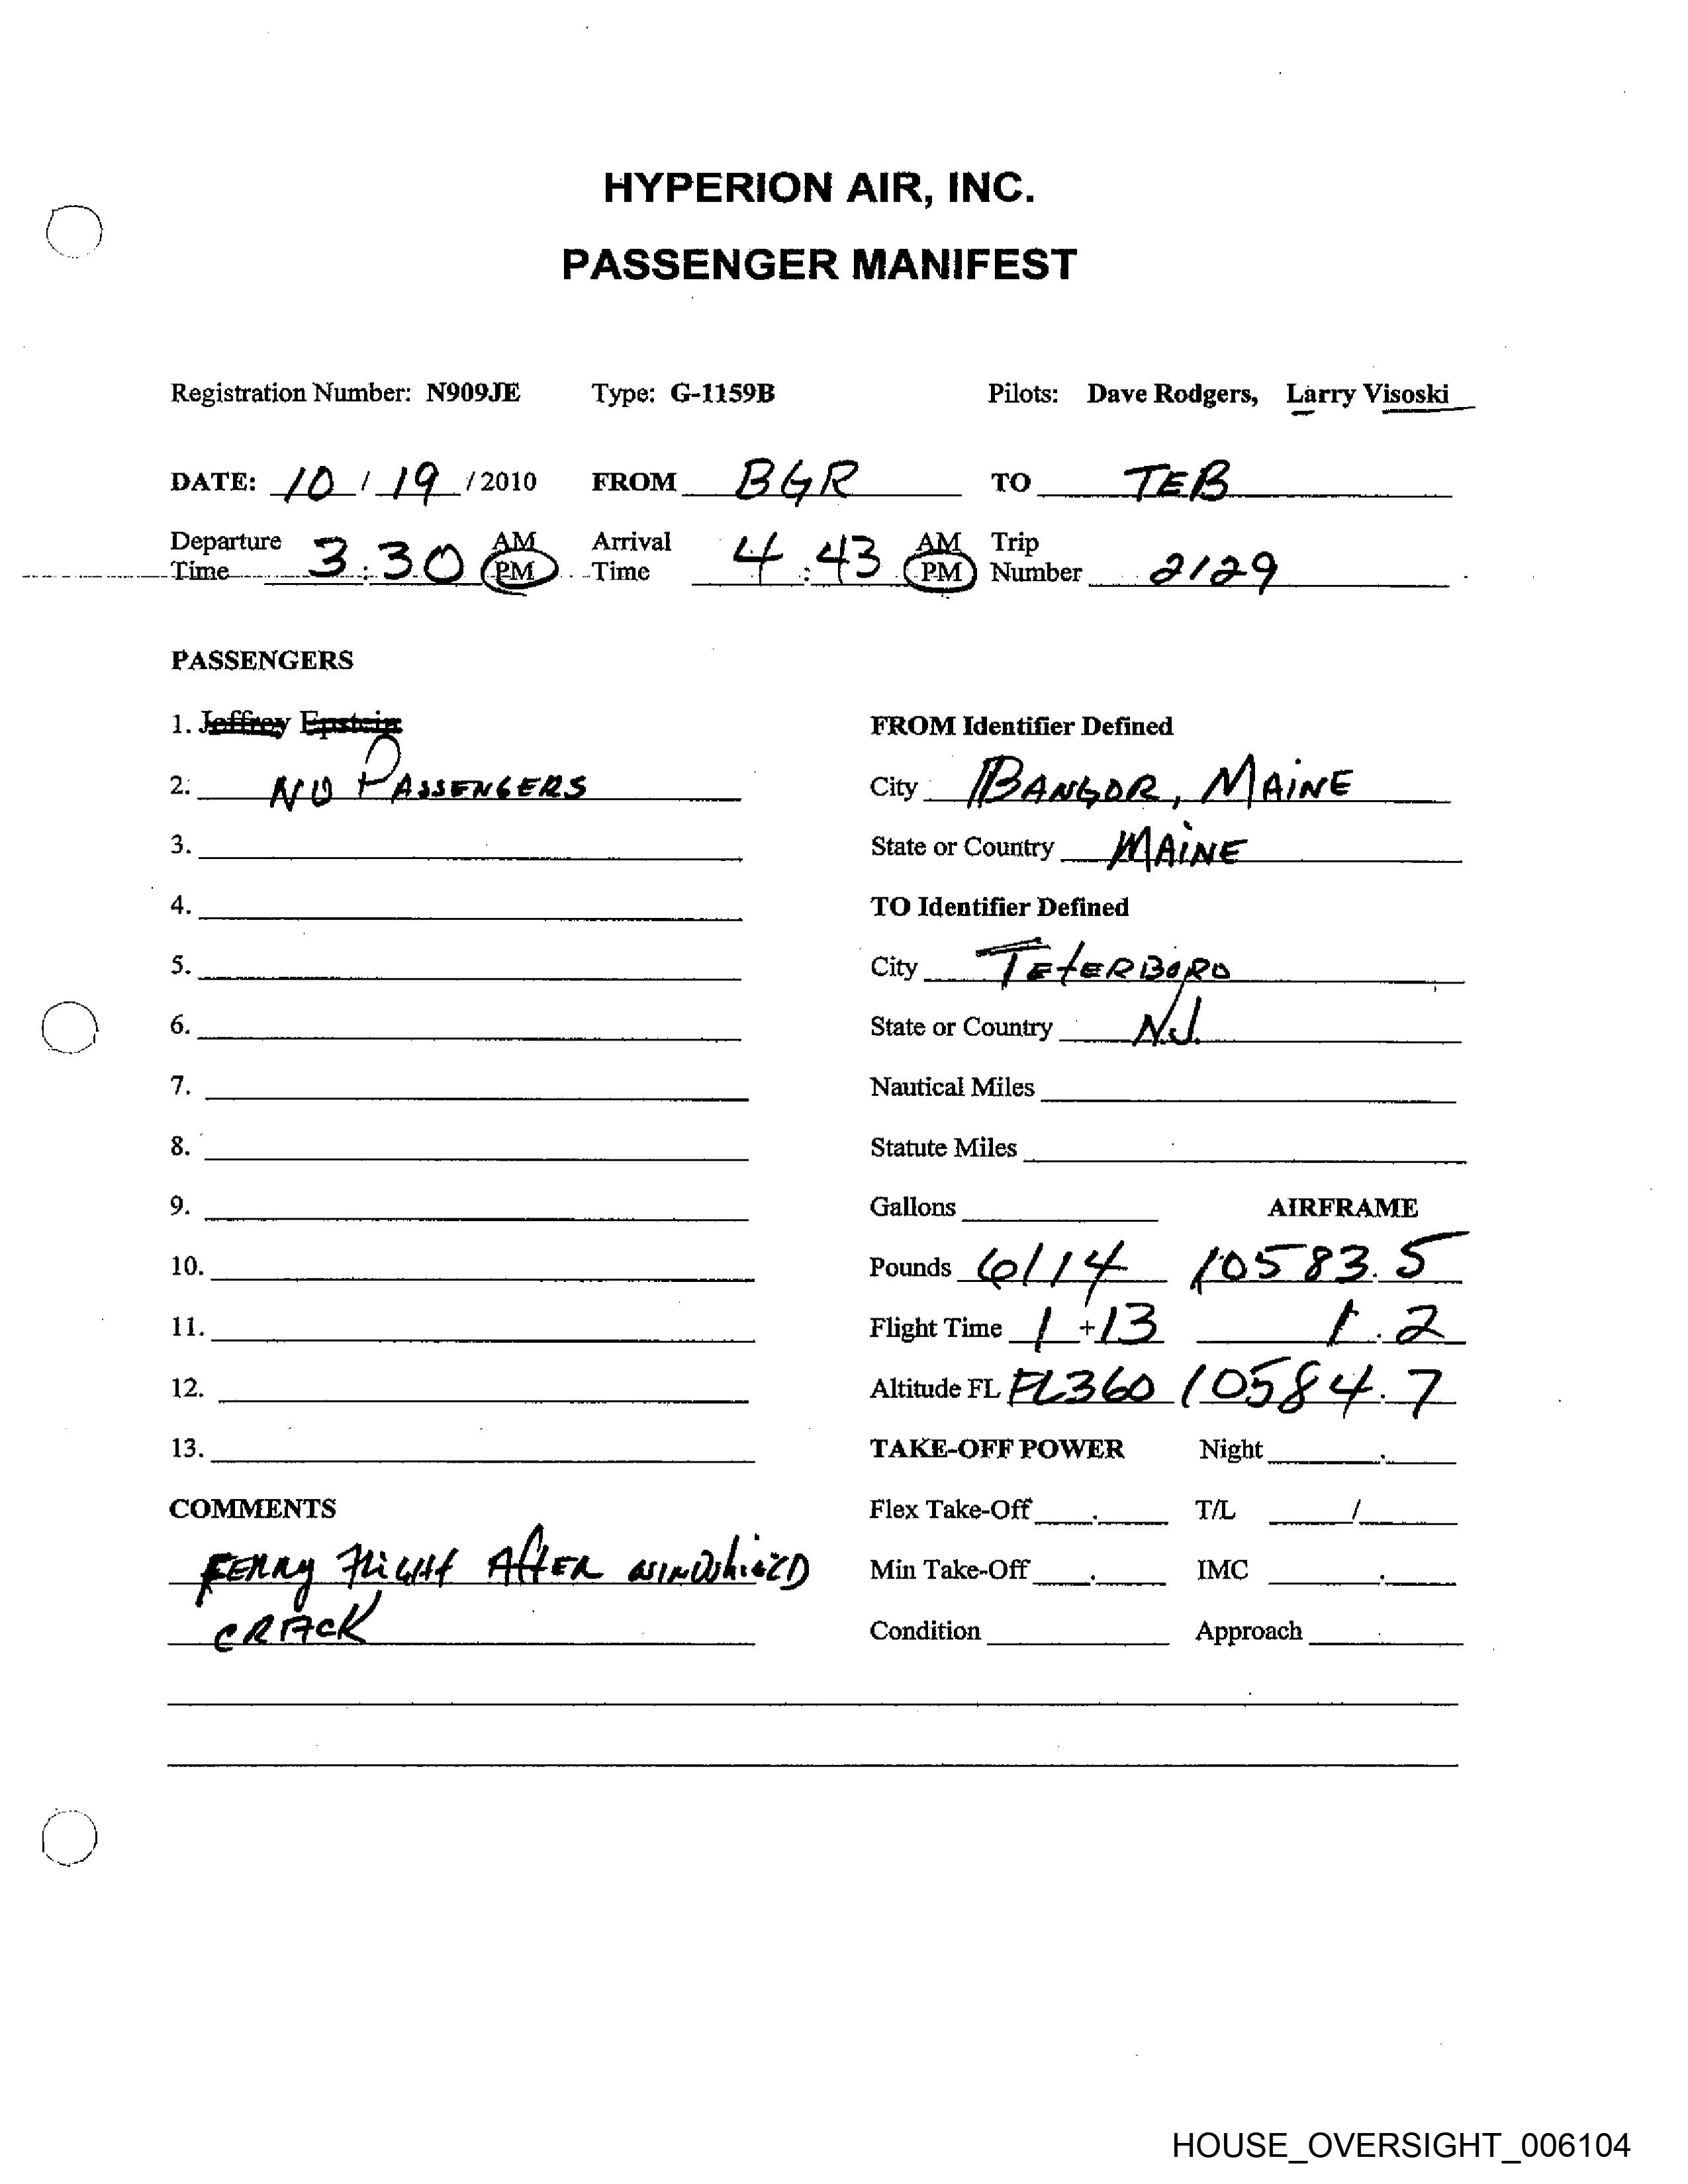 HYPERION AIR, INC.
PASSENGER MANIFEST
Registration Number: N909JE Type: G-1159B Pilots: Dave Rodgers, Larry Visoski
DATE: 10 / 19 / 2010 FROM BGR TO TEB
Departure Time 3:30 AM PM Arrival Time 4:43 AM PM Trip Number 2129
PASSENGERS
1. Jeffrey Epstein FROM Identifier Defined
2. NO PASSENGERS City BANGOR, MAINE
3. State or Country MAINE
4. TO Identifier Defined
5. City TETERBORO
6. State or Country N.J.
7. Nautical Miles
8. Statute Miles
9. Gallons AIRFRAME
10. Pounds 6114 10583.5
11. Flight Time 1 + 13 1.2
12. Altitude FL FL360 10584.7
13. TAKE-OFF POWER Night
COMMENTS Flex Take-Off T/L /
FERRY FLIGHT AFTER WINDSHIELD Min Take-Off IMC
CRACK Condition Approach
HOUSE_OVERSIGHT_006104